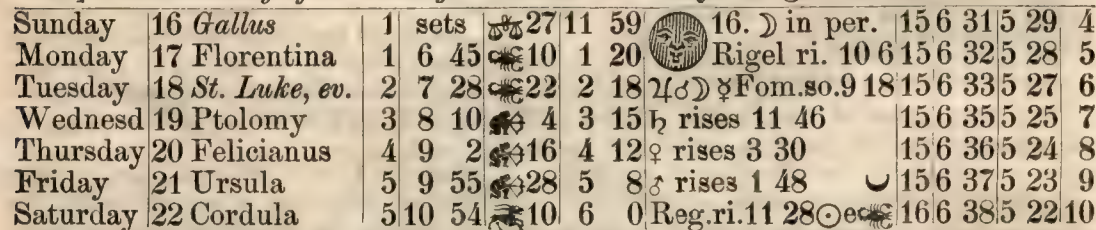 Sunday 16 Gallus 1 sets ♎27 11 59 16. ☽ in per. 15 6 31 5 29 4
Monday 17 Florentina 1 6 45 ♏10 1 20 Rigel ri. 10 6 15 6 32 5 28 5
Tuesday 18 St. Luke, ev. 2 7 28 ♏22 2 18 ♃☌☽ ☿ Fom.so.9 18 15 6 33 5 27 6
Wednesd 19 Ptolomy 3 8 10 ♐ 4 3 15 ♄ rises 11 46 15 6 35 5 25 7
Thursday 20 Felicianus 4 9 2 ♐16 4 12 ♀ rises 3 30 15 6 36 5 24 8
Friday 21 Ursula 5 9 55 ♐28 5 8 ♂ rises 1 48 15 6 37 5 23 9
Saturday 22 Cordula 5 10 54 ♑10 6 0 Reg.ri.11 28 ☉e♏ 16 6 38 5 22 10